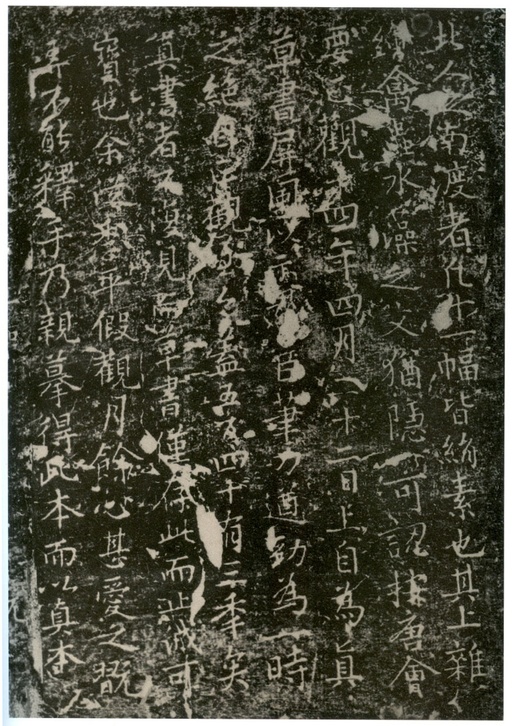 北人之南渡者凡十一幅皆絹素也其上雜
繪禽蟲水藻之文猶隱可認按唐會
要貞觀十四年四月二十二日上自為真
草書屏風以示羣臣筆力遒勁為一時
之絕貞觀至今蓋五百四十有三年矣
真書者不復見而草書僅存此而誠可
寶也余假觀月餘心甚愛之翫
弄不能釋手乃親摹得此本而以真本